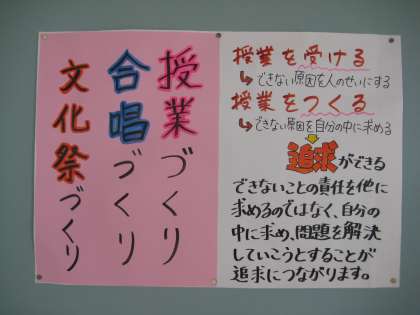 授業づくり
合唱づくり
文化祭づくり
授業を受ける
↳できない原因を人のせいにする
授業をつくる
↳できない原因を自分の中に求める
追求ができる
できないことの責任を他に
求めるのではなく、自分の
中に求め、問題を解決
していこうとすることが
追求につながります。